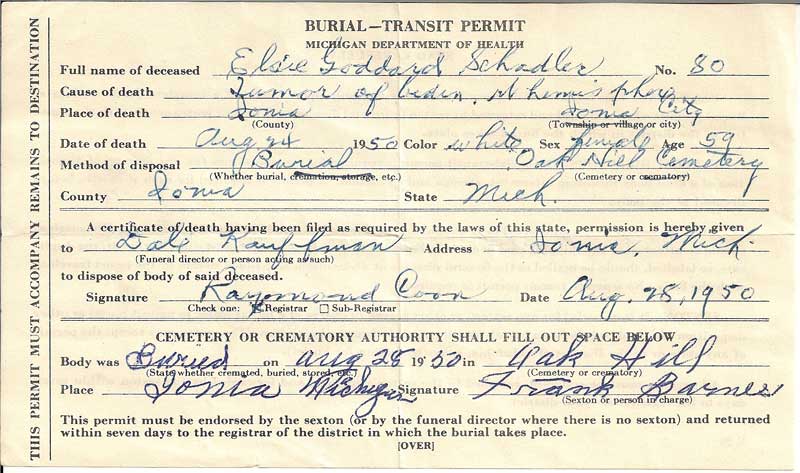 BURIAL—TRANSIT PERMIT
MICHIGAN DEPARTMENT OF HEALTH
Full name of deceased Elsie Goddard Schadler No. 80
Cause of death Tumor of brain, rt hemisphere
Place of death Ionia Ionia City
(County) (Township or village or city)
Date of death Aug 24 1950 Color white Sex female Age 59
Method of disposal Burial Oak Hill Cemetery
(Whether burial, cremation, storage, etc.) (Cemetery or crematory)
County Ionia State Mich.
A certificate of death having been filed as required by the laws of this state, permission is hereby given
to Dale Kauffman Address Ionia, Mich.
(Funeral director or person acting as such)
to dispose of body of said deceased.
Signature Raymond Coon Date Aug. 28, 1950
Check one: x Registrar ☐ Sub-Registrar
CEMETERY OR CREMATORY AUTHORITY SHALL FILL OUT SPACE BELOW
Body was Buried on Aug 28 1950 in Oak Hill
(State whether cremated, buried, stored, etc.) (Cemetery or crematory)
Place Ionia Michigan Signature Frank Barnes
(Sexton or person in charge)
This permit must be endorsed by the sexton (or by the funeral director where there is no sexton) and returned
within seven days to the registrar of the district in which the burial takes place.
[OVER]
THIS PERMIT MUST ACCOMPANY REMAINS TO DESTINATION